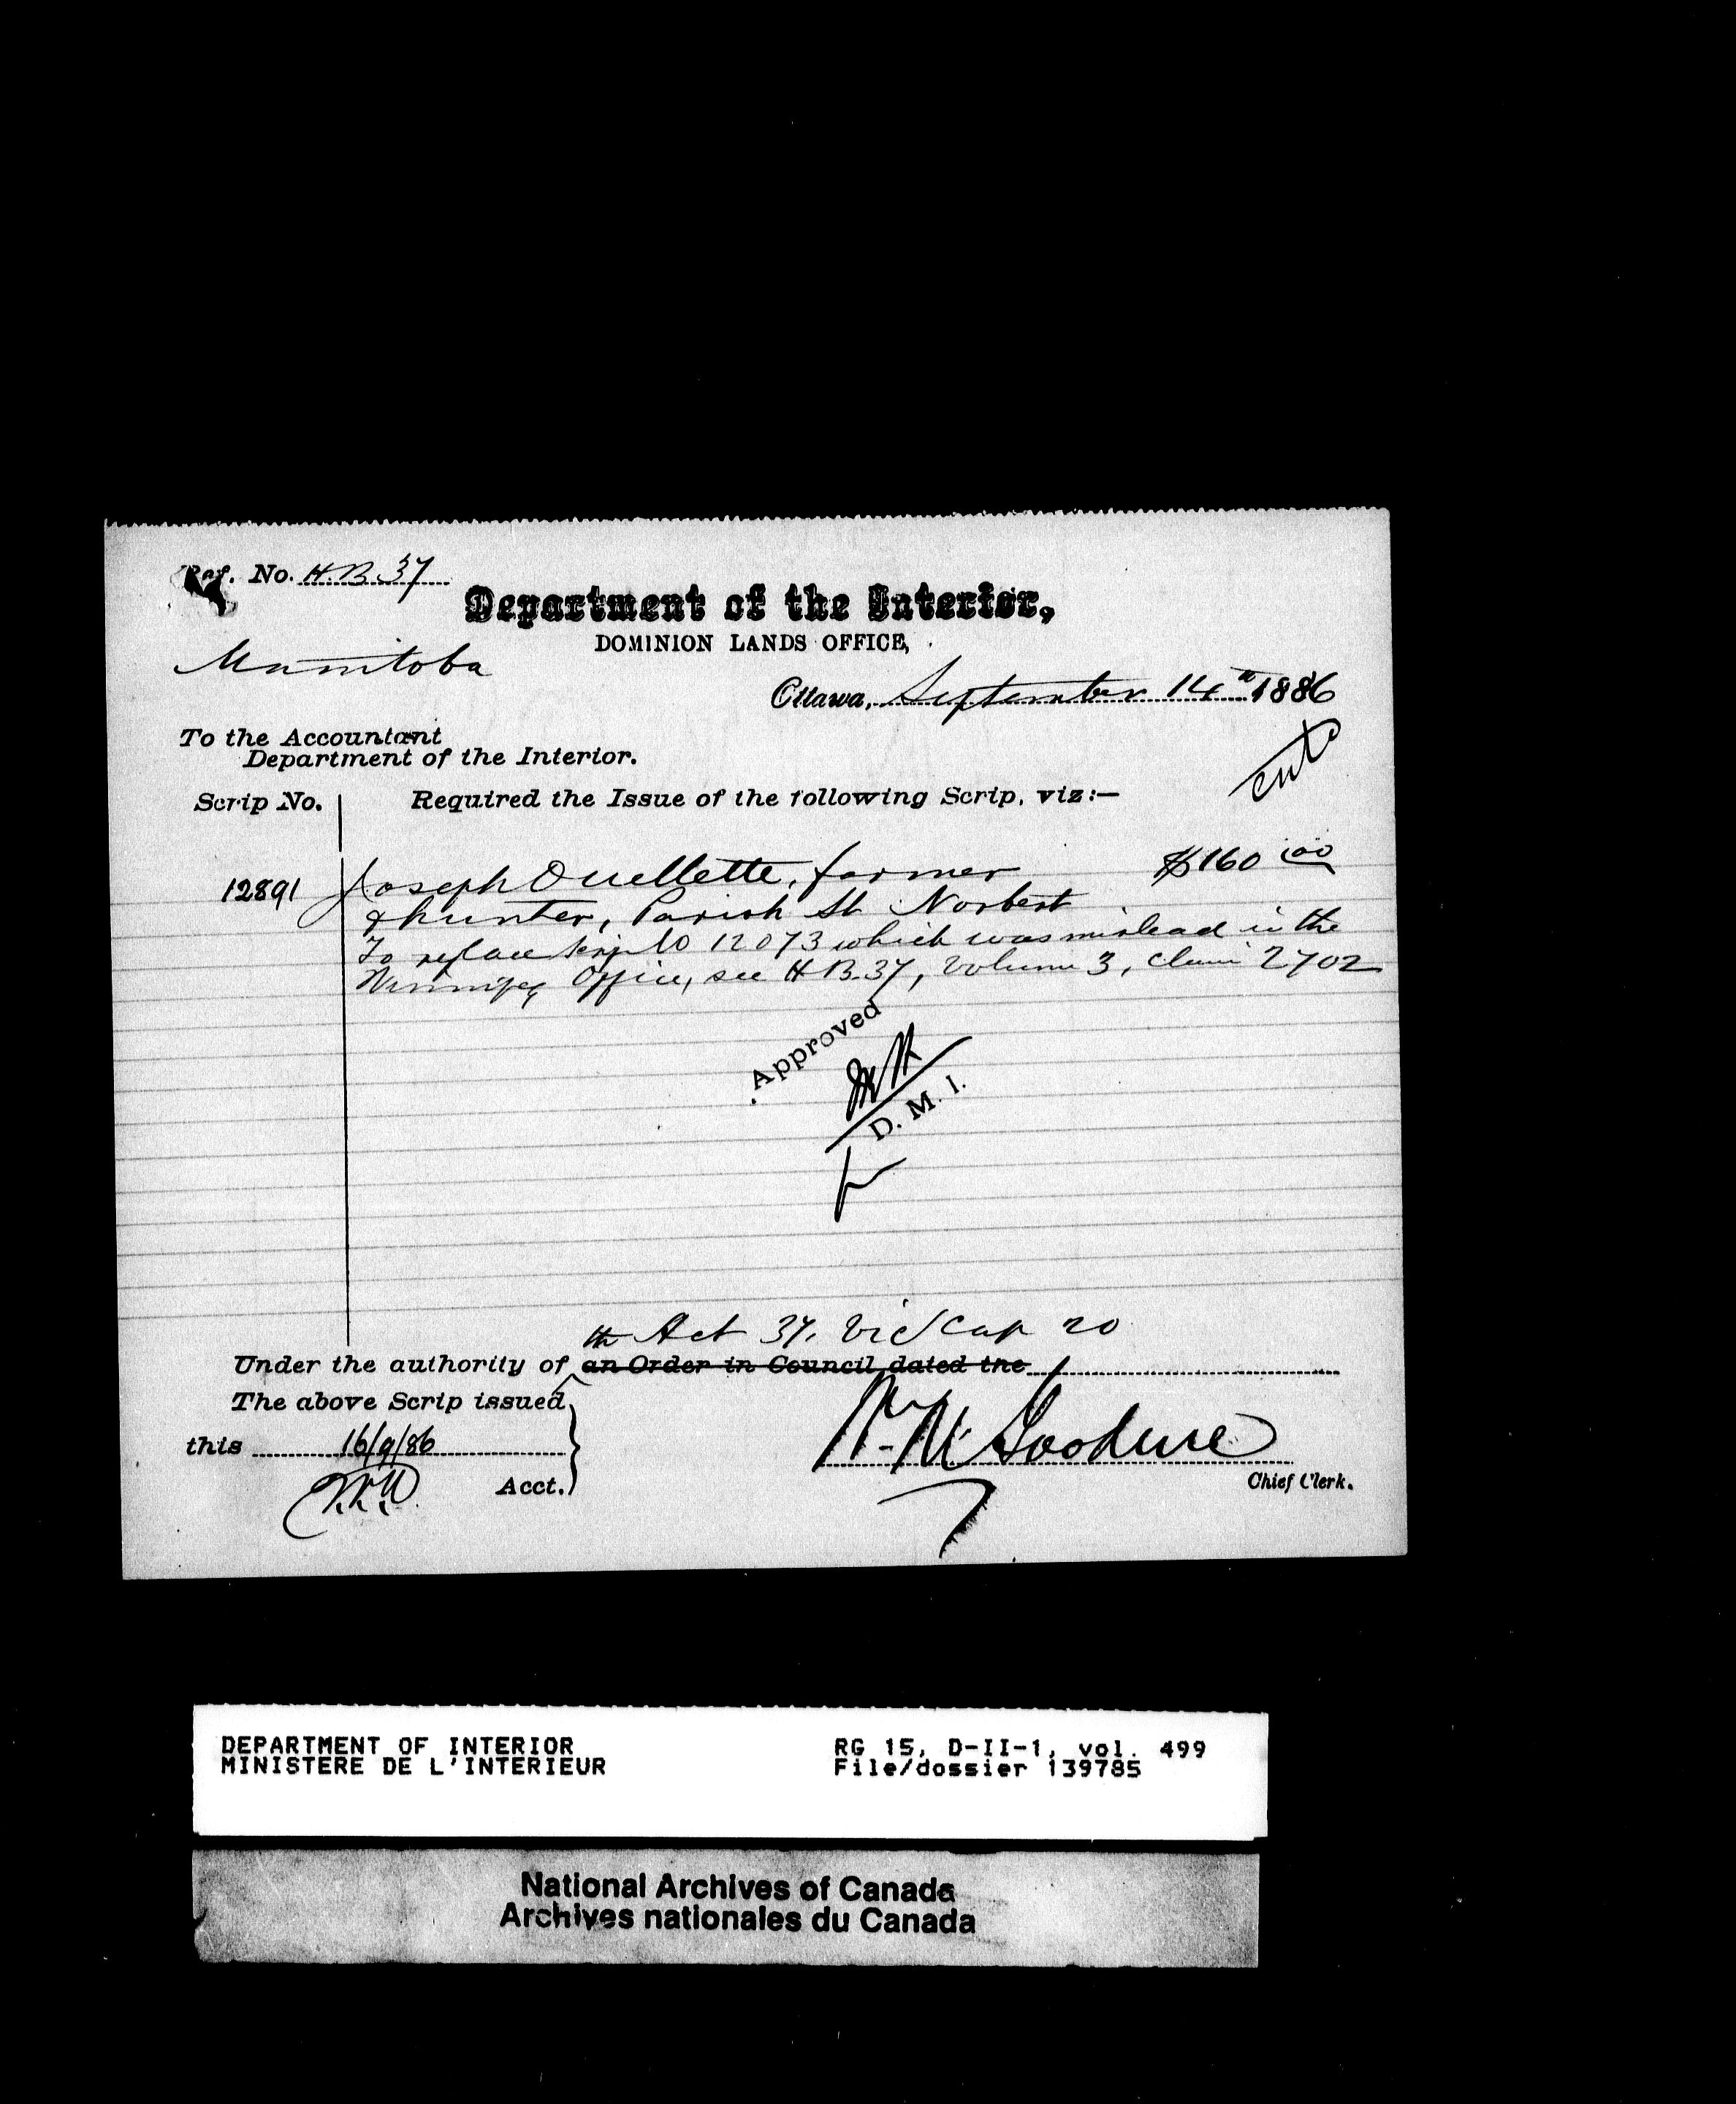 Ref. No. H.B 37
Department of the Interior,
DOMINION LANDS OFFICE,
Manitoba
Ottawa, September 14th 1886
To the Accountant
Department of the Interior.
entd
Scrip No. Required the Issue of the following Scrip, viz:—
12891 Joseph Ouellette, farmer $160 00
& hunter, Parish St Norbert
To replace Scrip No 12073 which was mislead in the
Winnipeg Office, see H B.37, Volume 3, Claim 2702
Approved
D. M. I.
the Act 37, Vic Cap 20
Under the authority of an Order in Council dated the
The above Scrip issued
this 16/9/86
Acct.
Chief Clerk.
DEPARTMENT OF INTERIOR RG 15, D-II-1, vol. 499
MINISTERE DE L'INTERIEUR File/dossier 139785
National Archives of Canada
Archives nationales du Canada